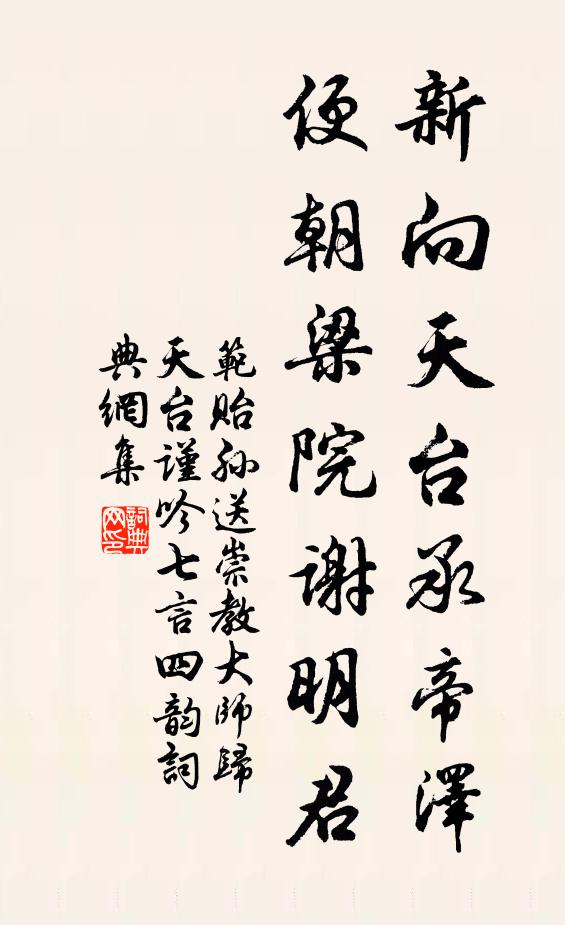 新向天台承帝澤
便朝梁院謝明君
範貽孙送崇教大师歸
天台謹吟七言四韵詞
典網集
詞典
网印